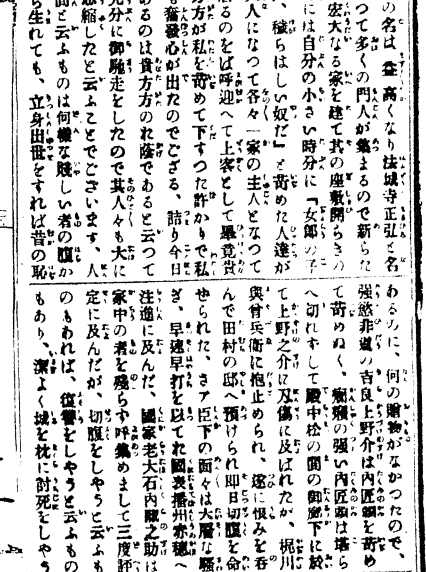 の名は、益高くなり法城寺正弘と名
つて多くの門人が集まるので新らた
宏大なる家を建て其の座敷開らきの
には自分の小さい時分に『女郎の子
、穢らはしい奴だ』と苛めた人達が
人になつて各々一家の主人となつて
居るのをば呼迎へて上客として畢竟貴
方が私を苛めて下すつた許かりで私
も奮發心が出たのでござる、詰り今日
あるのは貴方方のお蔭であると云つて
充分に御馳走をしたので其人々も大に
恐縮したと云ふことでございます、人
間と云ふものは何樣な賤しい者の腹か
ら生れても、立身出世をすれば昔の恥
あるのに、何の贈物がなかつたので、
強慾非道の吉良上野介は内匠頭を苛め
て苛めぬく、癇癪の強い内匠頭は堪ら
へ切れずして殿中松の間の御廊下に於
て上野之介に刄傷に及ばれたが、梶川
與曾兵衞に抱止められ、遂に恨みを呑
んで田村の邸へ預けられ即日切腹を命
せられた、さア臣下の面々は大層な騷
ぎ、早速早打を以てお國表播州赤穗へ
注進に及んだ、國家老大石内藏之助は
家中の者を殘らず呼集めまして三度評
定に及んだが、切腹をしやうと云ふも
のもあれば、復讐をしやうと云ふもの
もあり、潔よく城を枕に討死をしやう